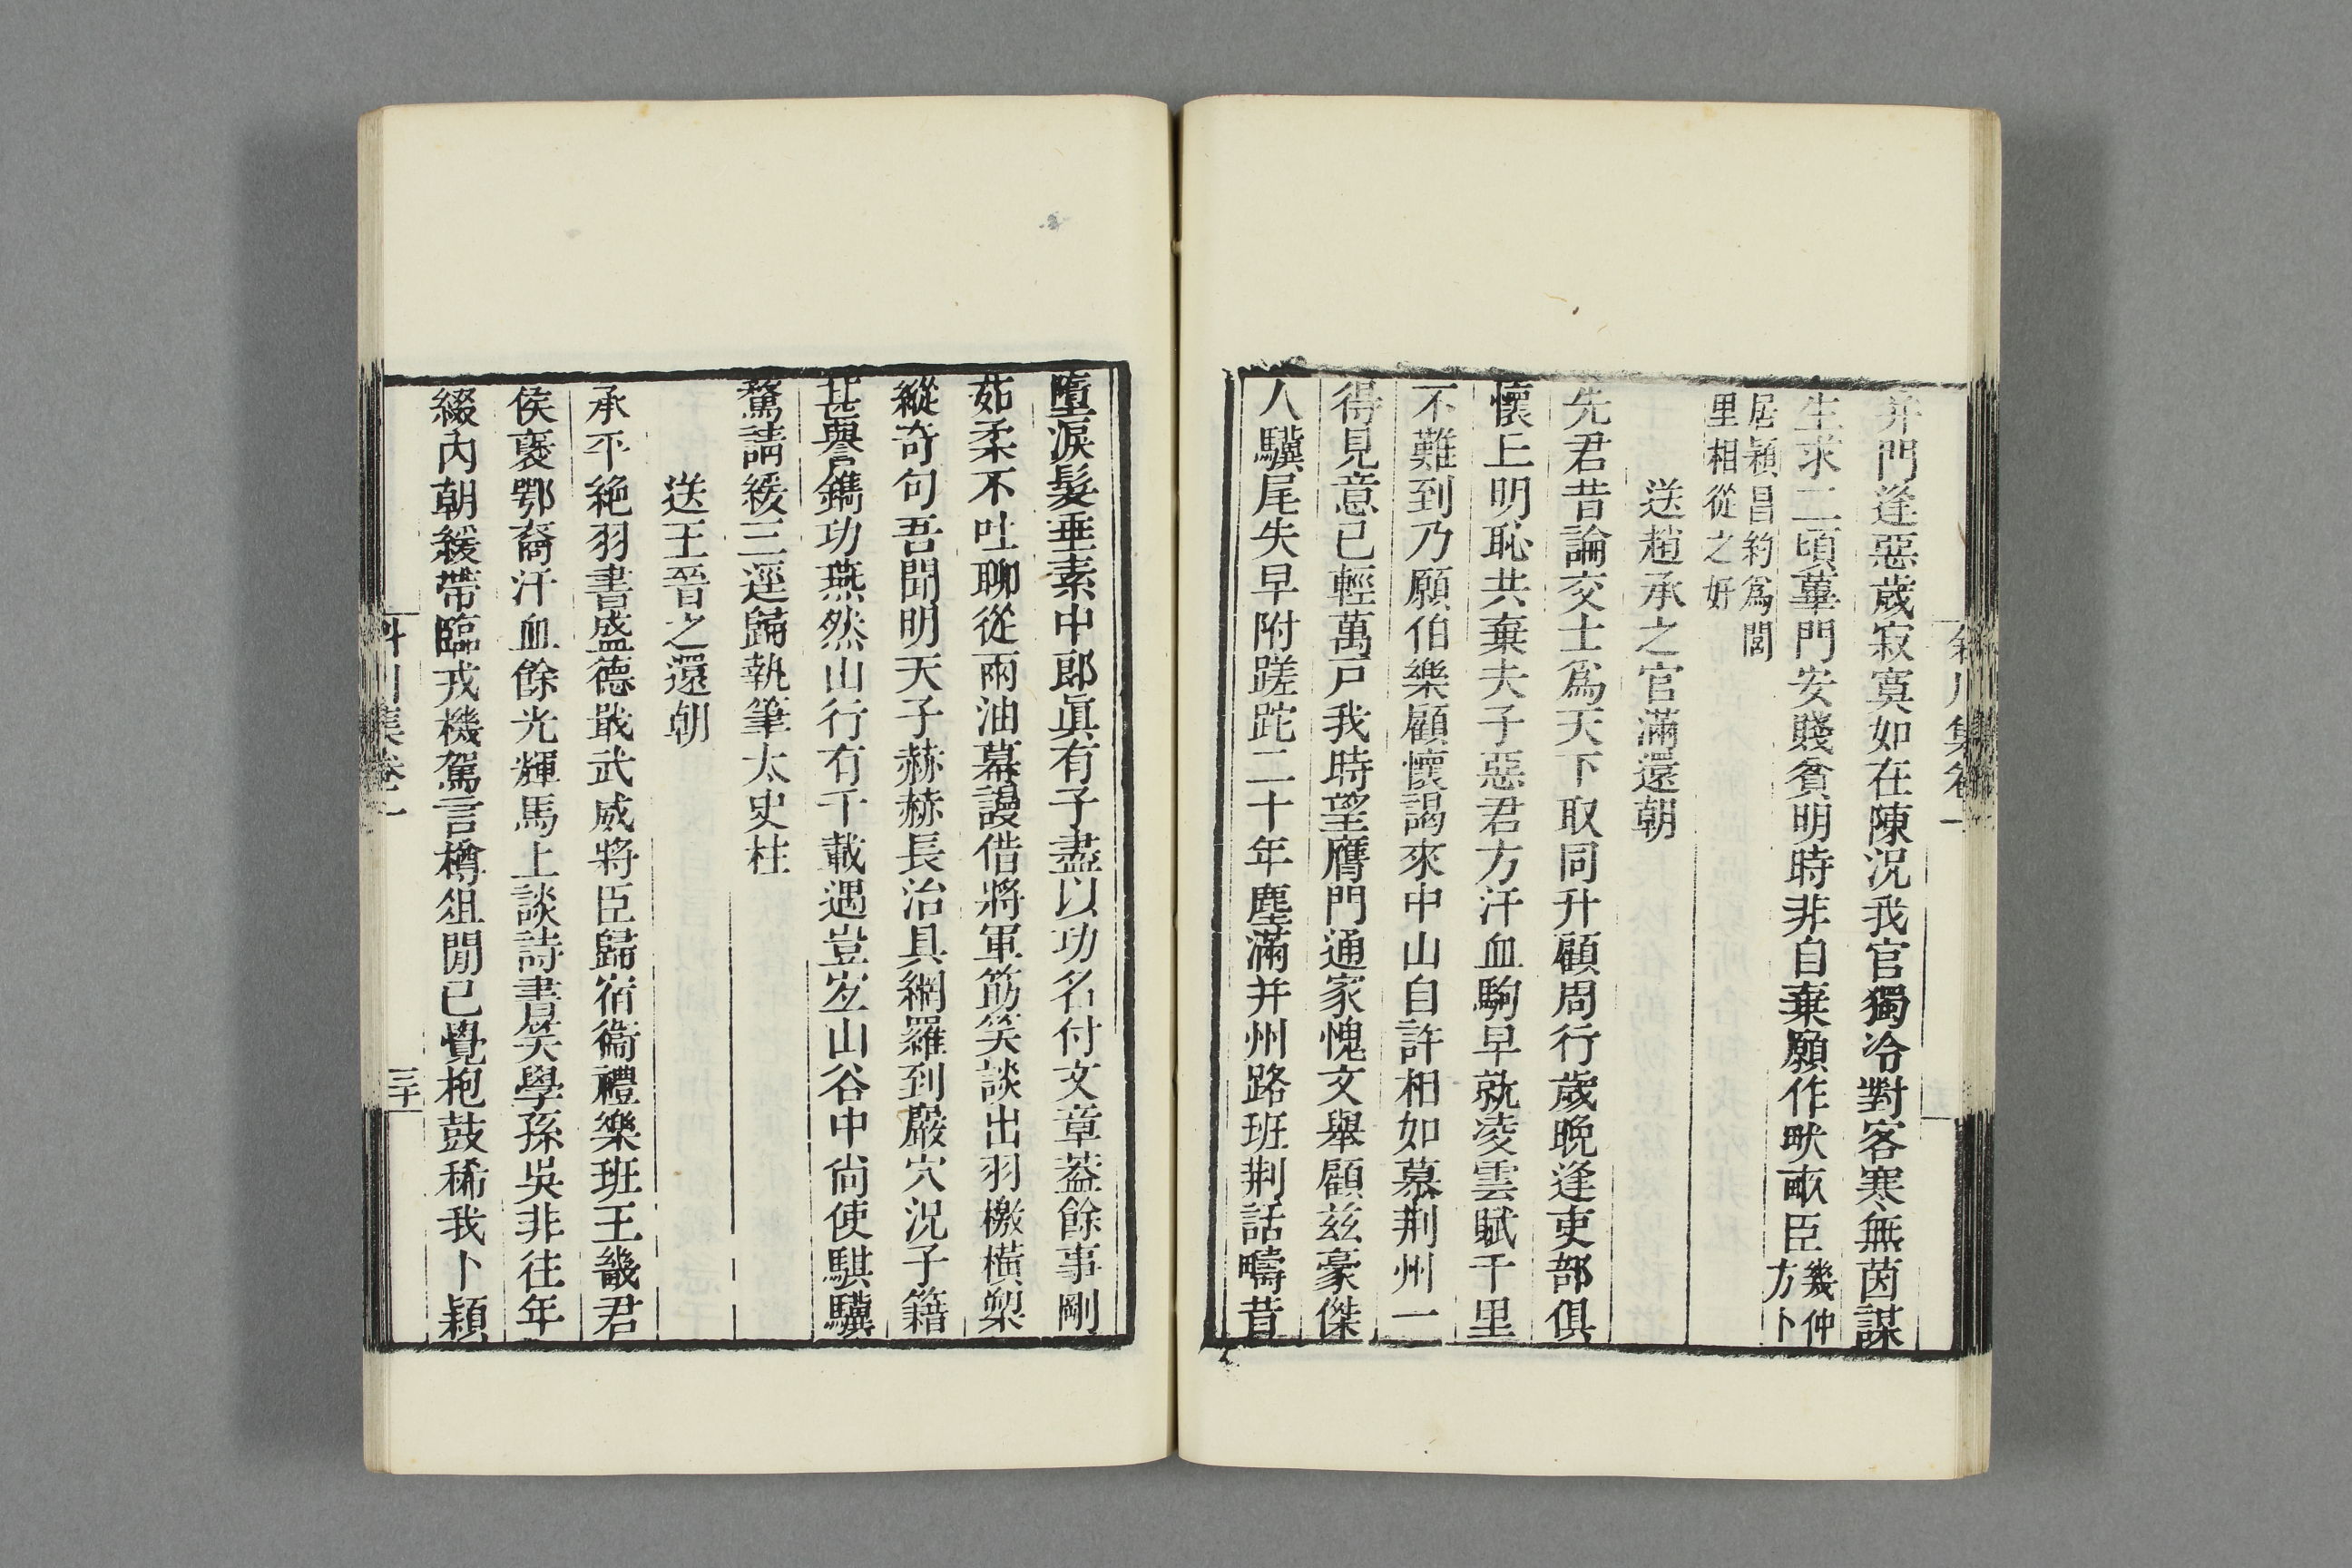 并門逢惡歲寂寞如在陳況我官獨冷對客寒無茵謀
生求二頃蓽門安賤貧明時非自棄願作畎畝臣幾仲方卜
居潁昌約為閭
里相從之好
送趙承之官滿還朝
先君昔論交士爲天下取同升顧周行歲晚逢吏部俱
懷上明恥共棄夫子惡君方汗血駒早就凌雲賦千里
不難到乃願伯樂顧懷謁來中山自許相如慕荆州一
得見意已輕萬戸我時望膺門通家愧文舉顧兹豪傑
人驥尾失早附蹉跎二十年塵滿并州路班荆話疇昔
墮淚髮垂素中郎眞有子盡以功名付文章葢餘事剛
茹柔不吐聊從兩油幕謾借將軍筯笑談出羽檄横槊
縱奇句吾聞明天子赫赫長治具網羅到巖穴況子籍
甚譽鐫功燕然山行有千載遇豈宜山谷中尙使騏驥
騖請緩三逕歸執筆太史柱
送王晉之還朝
承平絶羽書盛德戢武威將臣歸宿衞禮樂班王畿君
侯褒鄂裔汗血餘光輝馬上談詩書晃笑學孫吳非往年
綴內朝緩帶臨戎機駕言樽俎閒已覺枹鼓稀我卜潁
斜川集卷二
三十